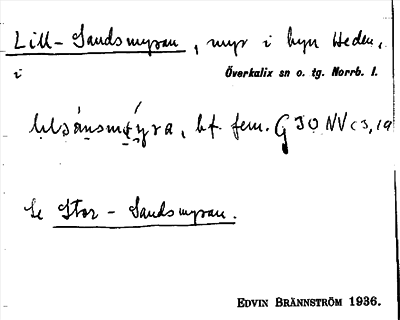 Lill-Sandsmyran, myr i byn Heden,
i Överkalix sn o. tg. Norrb. l.
bf. fem. G 30 NV c 3, 1a
Se Stor-Sandsmyran.
EDVIN BRÄNNSTRÖM 1936.